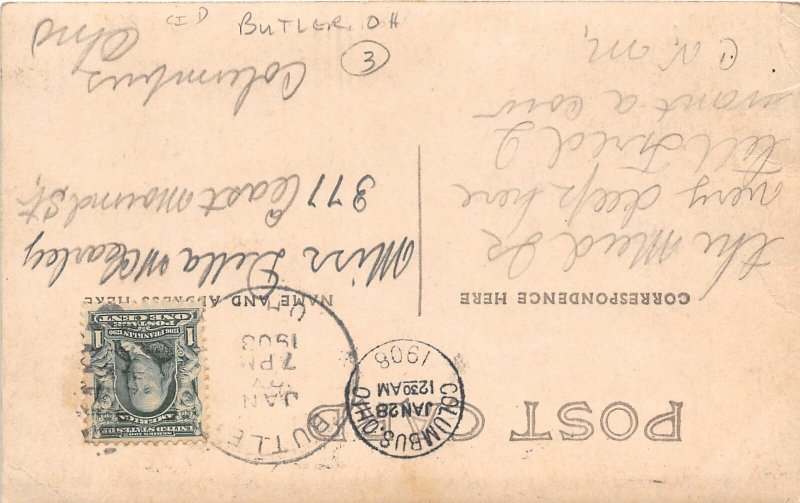 CID BUTLER, OH
3
POST CARD
CORRESPONDENCE HERE
NAME AND ADDRESS HERE
the Mud Is
very deep here
tell Fred I
want a cow
C. N. M,
Miss Della McCearley
377 East Mound St,
Columbus,
Ohio
COLUMBUS, OHIO
JAN 28
12 30 AM
1908
BUTLER
JAN
27
7 PM
1908
OHIO
SERIES 1902
UNITED STATES OF
AMERICA
1 1
POSTAGE
ONE CENT